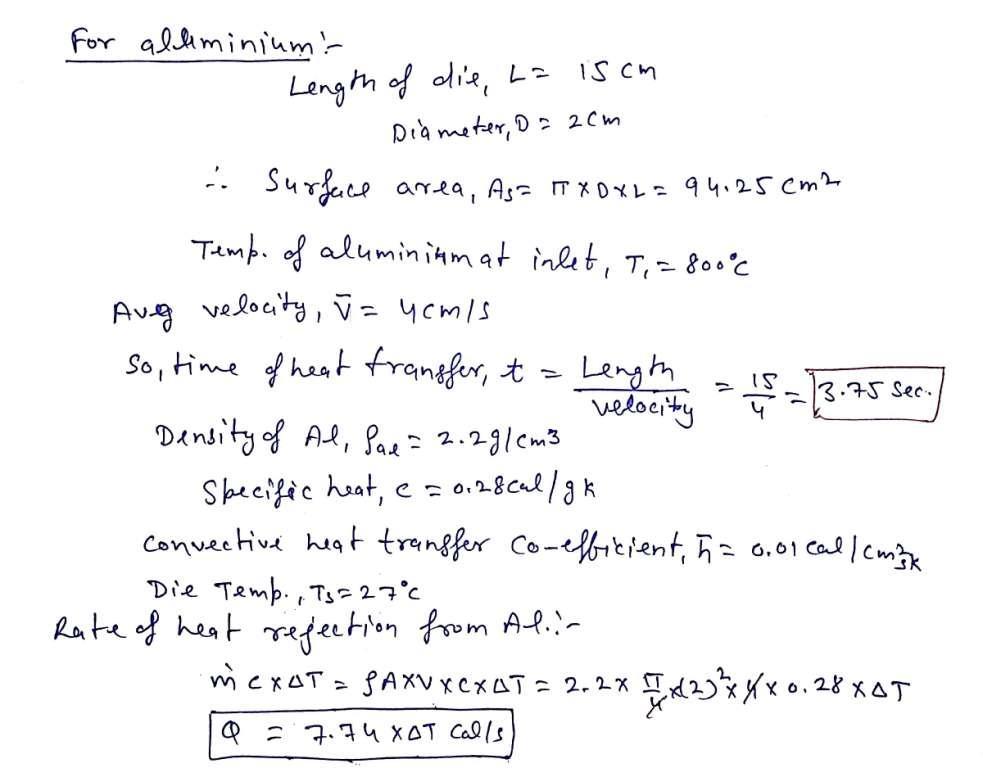 For alluminium:-
Length of die, L = 15 cm
Diameter, D = 2 cm
∴ Surface area, As = π x D x L = 94.25 cm²
Temp. of aluminium at inlet, T₁ = 800°C
Avg velocity, v̄ = 4cm/s
So, time of heat transfer, t = Length/velocity = 15/4 = 3.75 Sec.
Density of Al, ρal = 2.2g/cm3
Specific heat, c = 0.28cal/g k
Convective heat transfer Co-efficient, h̄ = 0.01 cal/cm²sk
Die Temp., Ts = 27°C
Rate of heat rejection from Al.:-
ṁ c x ΔT = ρAxVxcxΔT = 2.2 x π/4 x(2)² x 4 x 0.28 x ΔT
Q = 7.74 x ΔT Cal/s